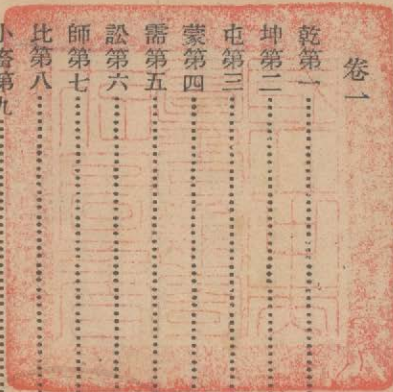 卷一
乾第一
坤第二
屯第三
蒙第四
需第五
訟第六
師第七
比第八
小畜第九